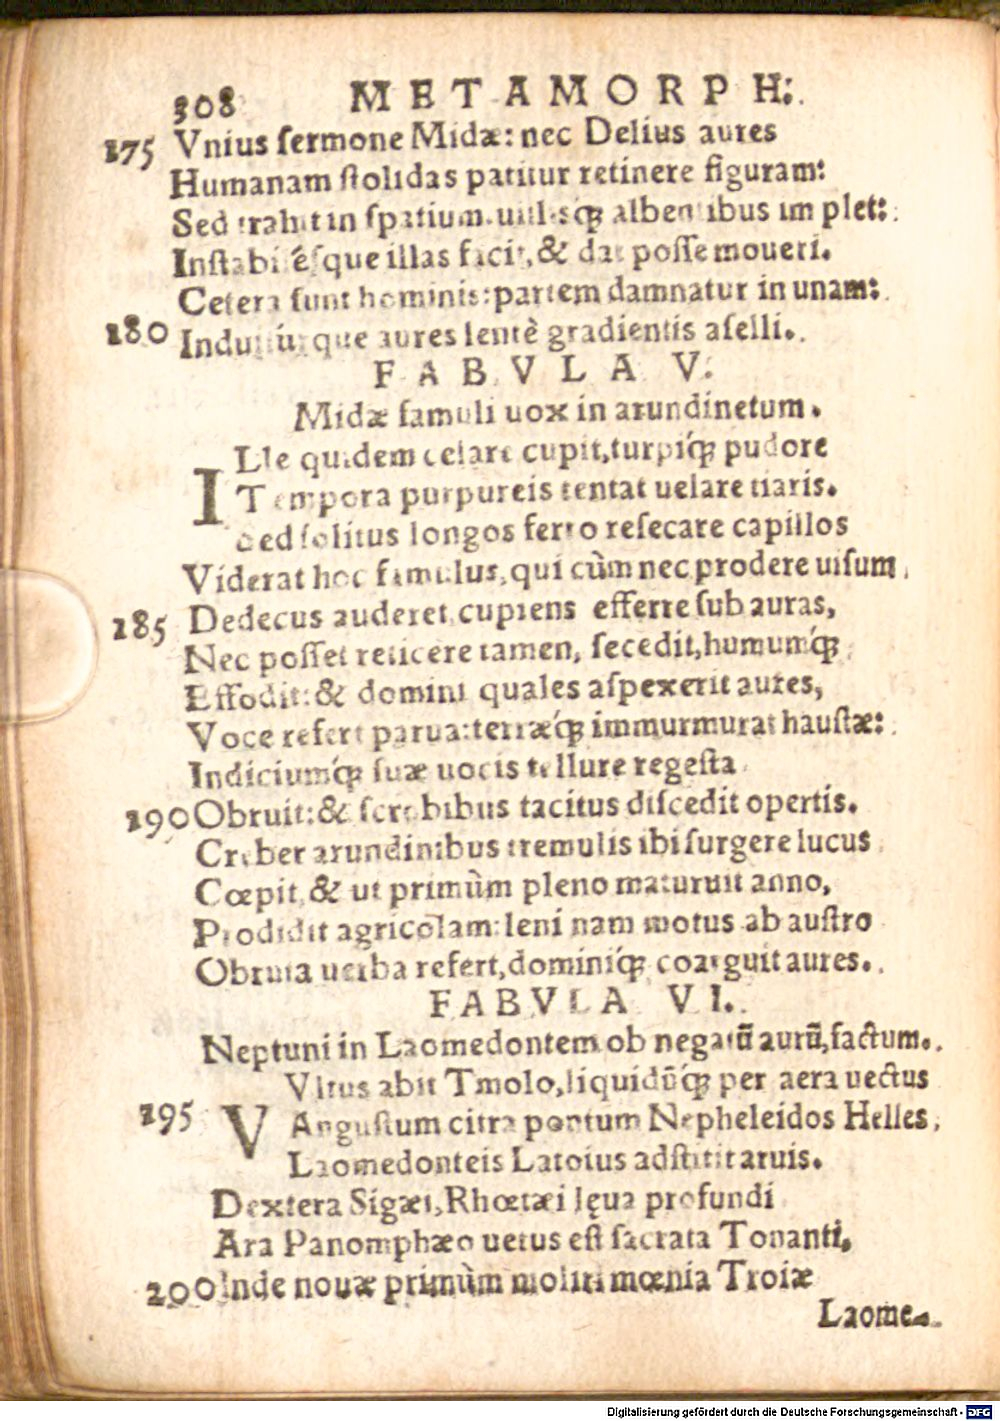 308 METAMORPH:
175 Vnius sermone Midæ: nec Delius aures
Humanam stolidas patitur retinere figuram:
Sed trahit in spatium, uillisq́; albentibus implet:
Instabilésque illas facit, & dat posse moueri.
Cetera sunt hominis: partem damnatur in unam:
180 Induitúrque aures lentè gradientis aselli.
FABVLA V.
Midæ famuli uox in arundinetum.
ILle quidem celare cupit, turpiq́; pudore
Tempora purpureis tentat uelare tiaris.
Sed solitus longos ferro resecare capillos
Viderat hoc famulus, qui cùm nec prodere uisum
185 Dedecus auderet, cupiens efferre sub auras,
Nec posset reticere tamen, secedit, humumq́;
Effodit: & domini quales aspexerit aures,
Voce refert parua: terræq́; immurmurat haustæ:
Indiciumq́; suæ uocis tellure regesta
190 Obruit: & scrobibus tacitus discedit opertis.
Creber arundinibus tremulis ibi surgere lucus
Cœpit, & ut primùm pleno maturuit anno,
Prodidit agricolam: leni nam motus ab austro
Obruta uerba refert, dominiq́; coarguit aures.
FABVLA VI.
Neptuni in Laomedontem ob negatū aurū, factum.
VLtus abit Tmolo, liquidūq́; per aera uectus
195 Angustum citra pontum Nepheleidos Helles,
Laomedonteis Latoius adstitit aruis.
Dextera Sigæi, Rhœtæi lęua profundi
Ara Panomphæo uetus est sacrata Tonanti.
200 Inde nouæ primùm moliri mœnia Troiæ
Laome-
Digitalisierung gefördert durch die Deutsche Forschungsgemeinschaft - DFG